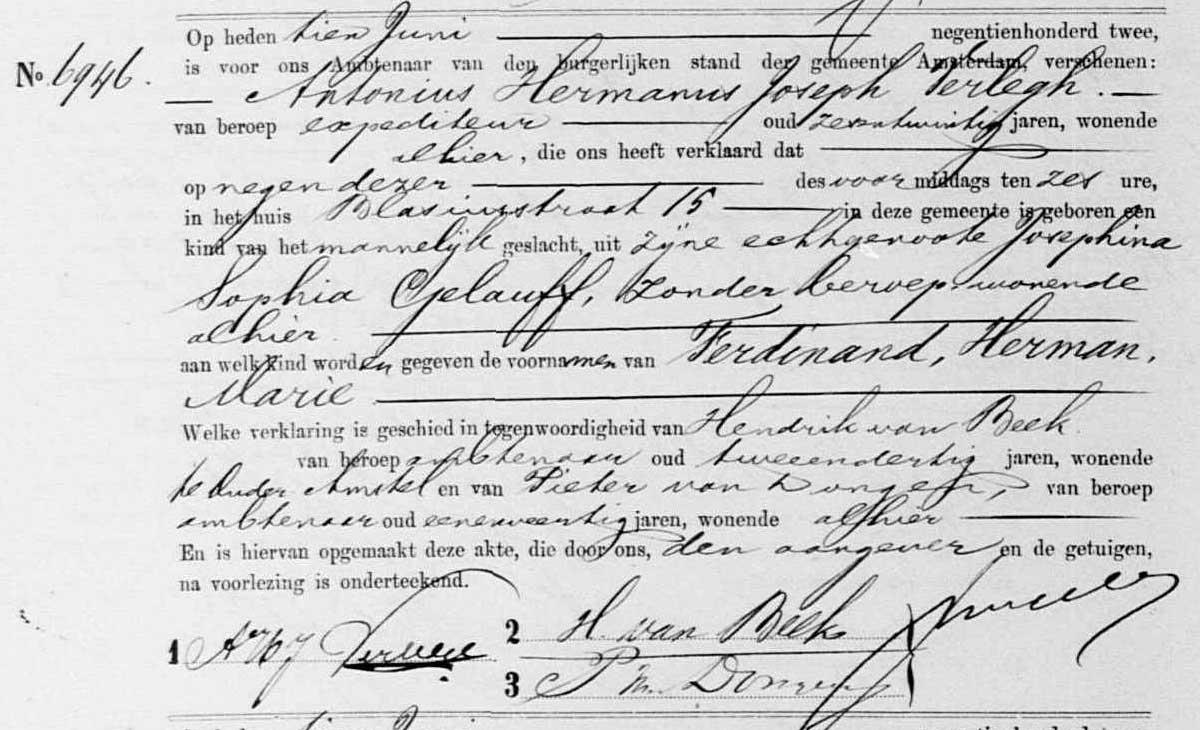 Op heden tien Juni negentienhonderd twee,
No 6946. is voor ons Ambtenaar van den burgerlijken stand der gemeente Amsterdam, verschenen:
Antonius Hermanus Joseph Terlegh.
van beroep expediteur oud zesentwintig jaren, wonende
alhier, die ons heeft verklaard dat
op negen dezer des voormiddags ten zes ure,
in het huis Blasiusstraat 15 in deze gemeente is geboren een
kind van het mannelijk geslacht, uit zijne echtgenoote Josephina
Sophia Gelauff, zonder beroep, wonende
alhier.
aan welk kind worden gegeven de voornamen van Ferdinand, Herman,
Marie
Welke verklaring is geschied in tegenwoordigheid van Hendrik van Beek
van beroep ambtenaar oud tweeendertig jaren, wonende
te Ouder Amstel en van Pieter van Dongen, van beroep
ambtenaar oud eenenveertig jaren, wonende alhier
En is hiervan opgemaakt deze akte, die door ons, den aangever en de getuigen,
na voorlezing is onderteekend.
2 H. van Beek
1
3 P. van Dongen